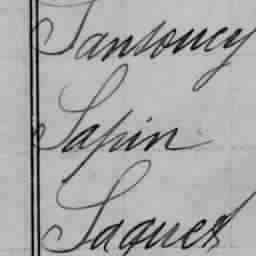 Sansoucy
Sapin
Saquet